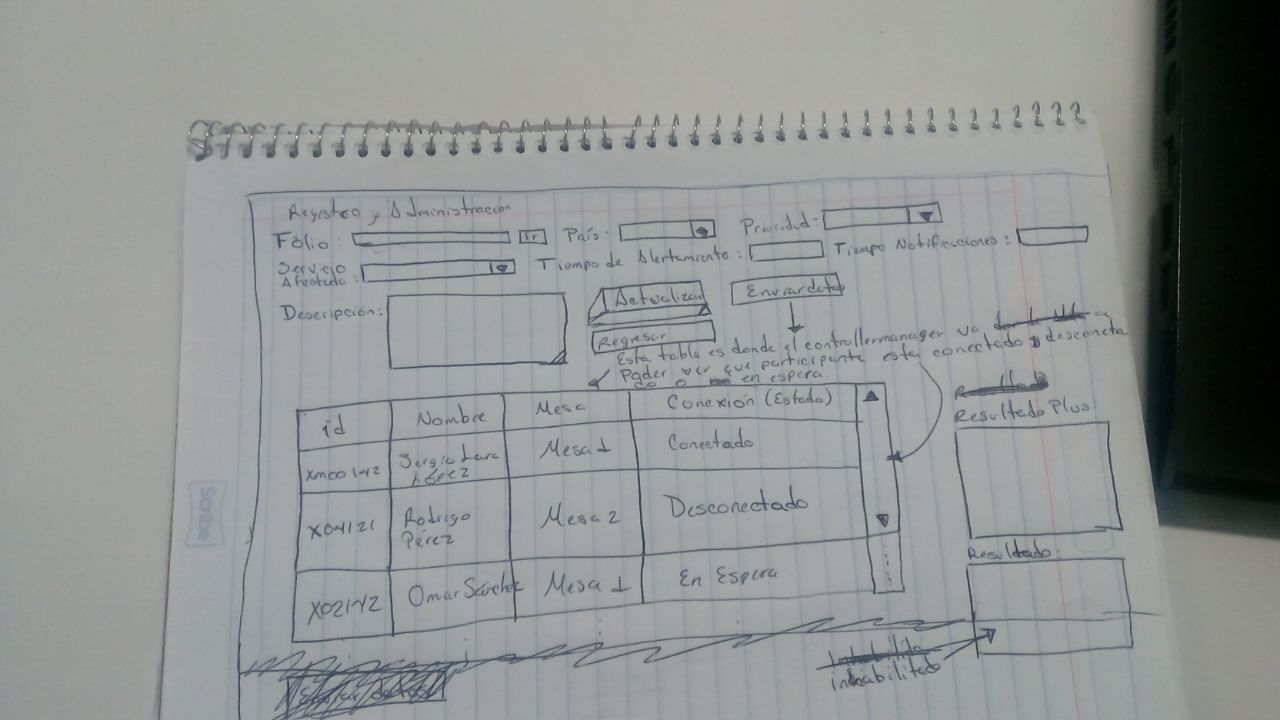 Registro y Administración
Fólio: Ir País: Prioridad:
Servicio Afectado: Tiempo de Alertamiento: Tiempo Notificaciones:
Descripción: Actualizar Enviar datos
Regresar
Esta tabla es donde el controllermanager va a
poder ver que participante esta conectado, desconecta
do o en espera.
id Nombre Mesa Conexión (Estado)
xm00142 Sergio Lara López Mesa 1 Conectado
X04121 Rodrigo Pérez Mesa 2 Desconectado
X02142 Omar Sánchez Mesa 1 En Espera
Resultado Plus:
Resultado:
inhabilitado
Scribe